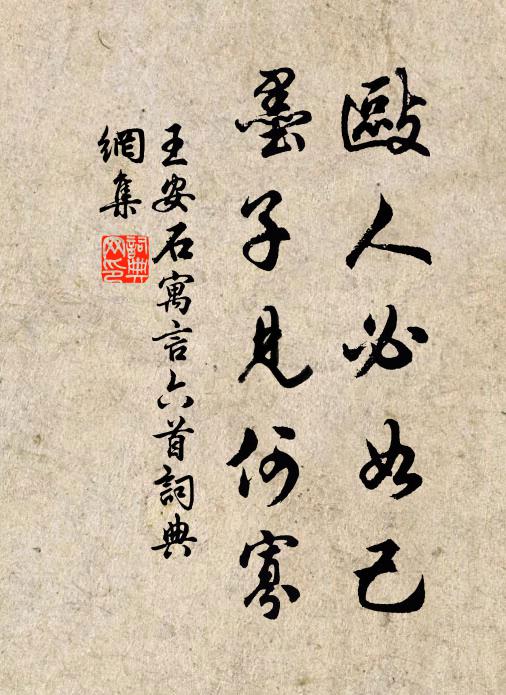 毆人必如己
墨子見何寡
王安石寓言六首詞典
網集
詞典
网印